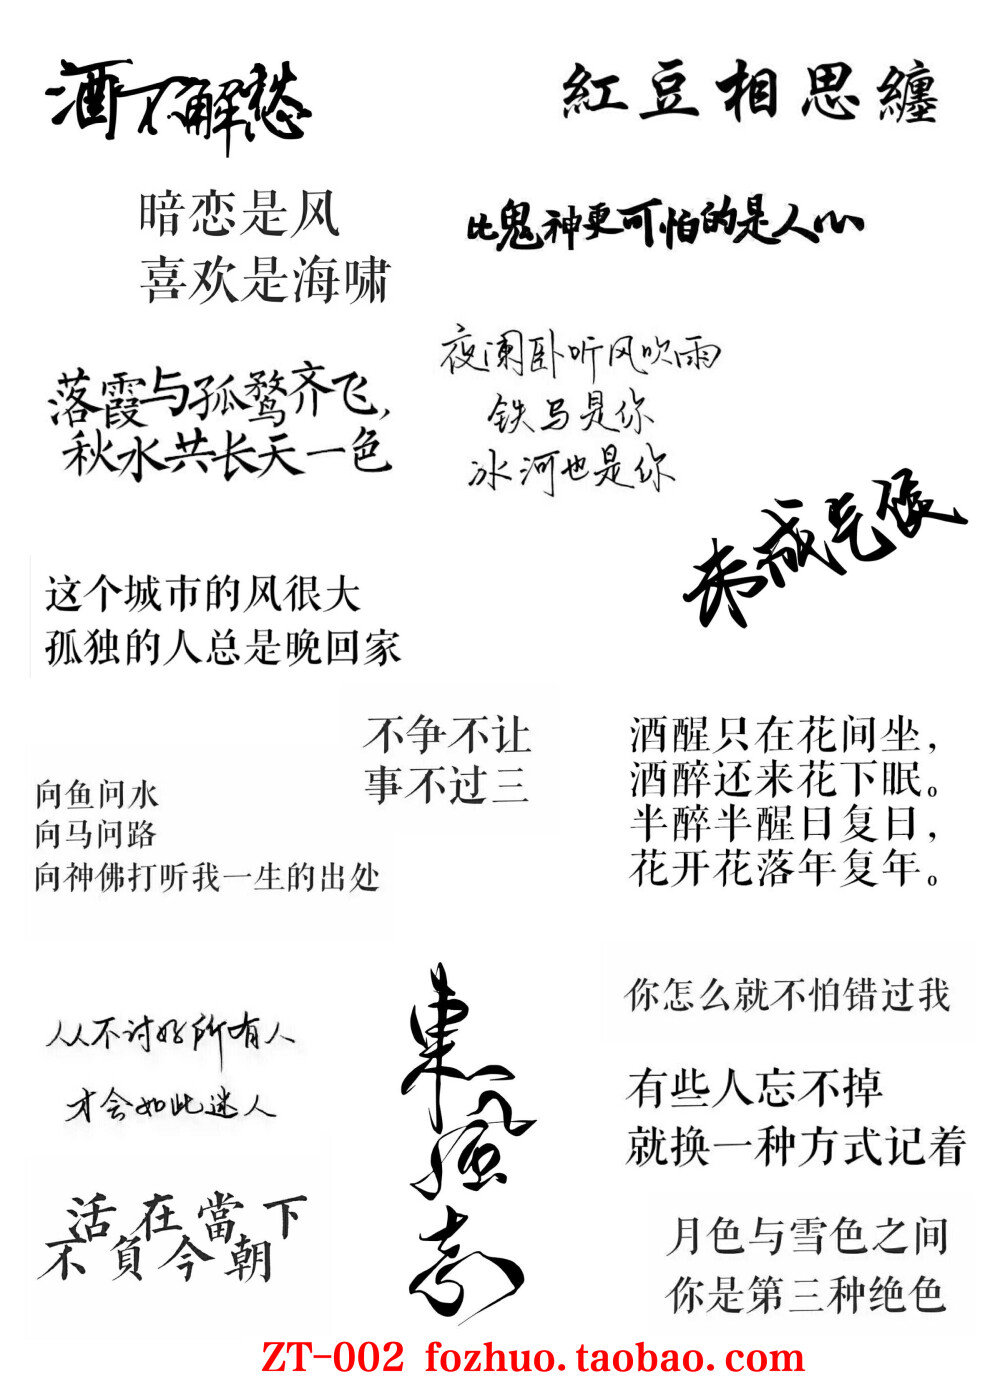 酒不解愁
紅豆相思纏
暗恋是风
喜欢是海啸
比鬼神更可怕的是人心
夜阑卧听风吹雨
铁马是你
冰河也是你
落霞与孤鹜齐飞,
秋水共长天一色
这个城市的风很大
孤独的人总是晚回家
不争不让
事不过三
向鱼问水
向马问路
向神佛打听我一生的出处
酒醒只在花间坐，
酒醉还来花下眠。
半醉半醒日复日，
花开花落年复年。
从不讨好所有人
才会如此迷人
東風
你怎么就不怕错过我
有些人忘不掉
就换一种方式记着
活在當下
不負今朝
月色与雪色之间
你是第三种绝色
ZT-002 fozhuo.taobao.com